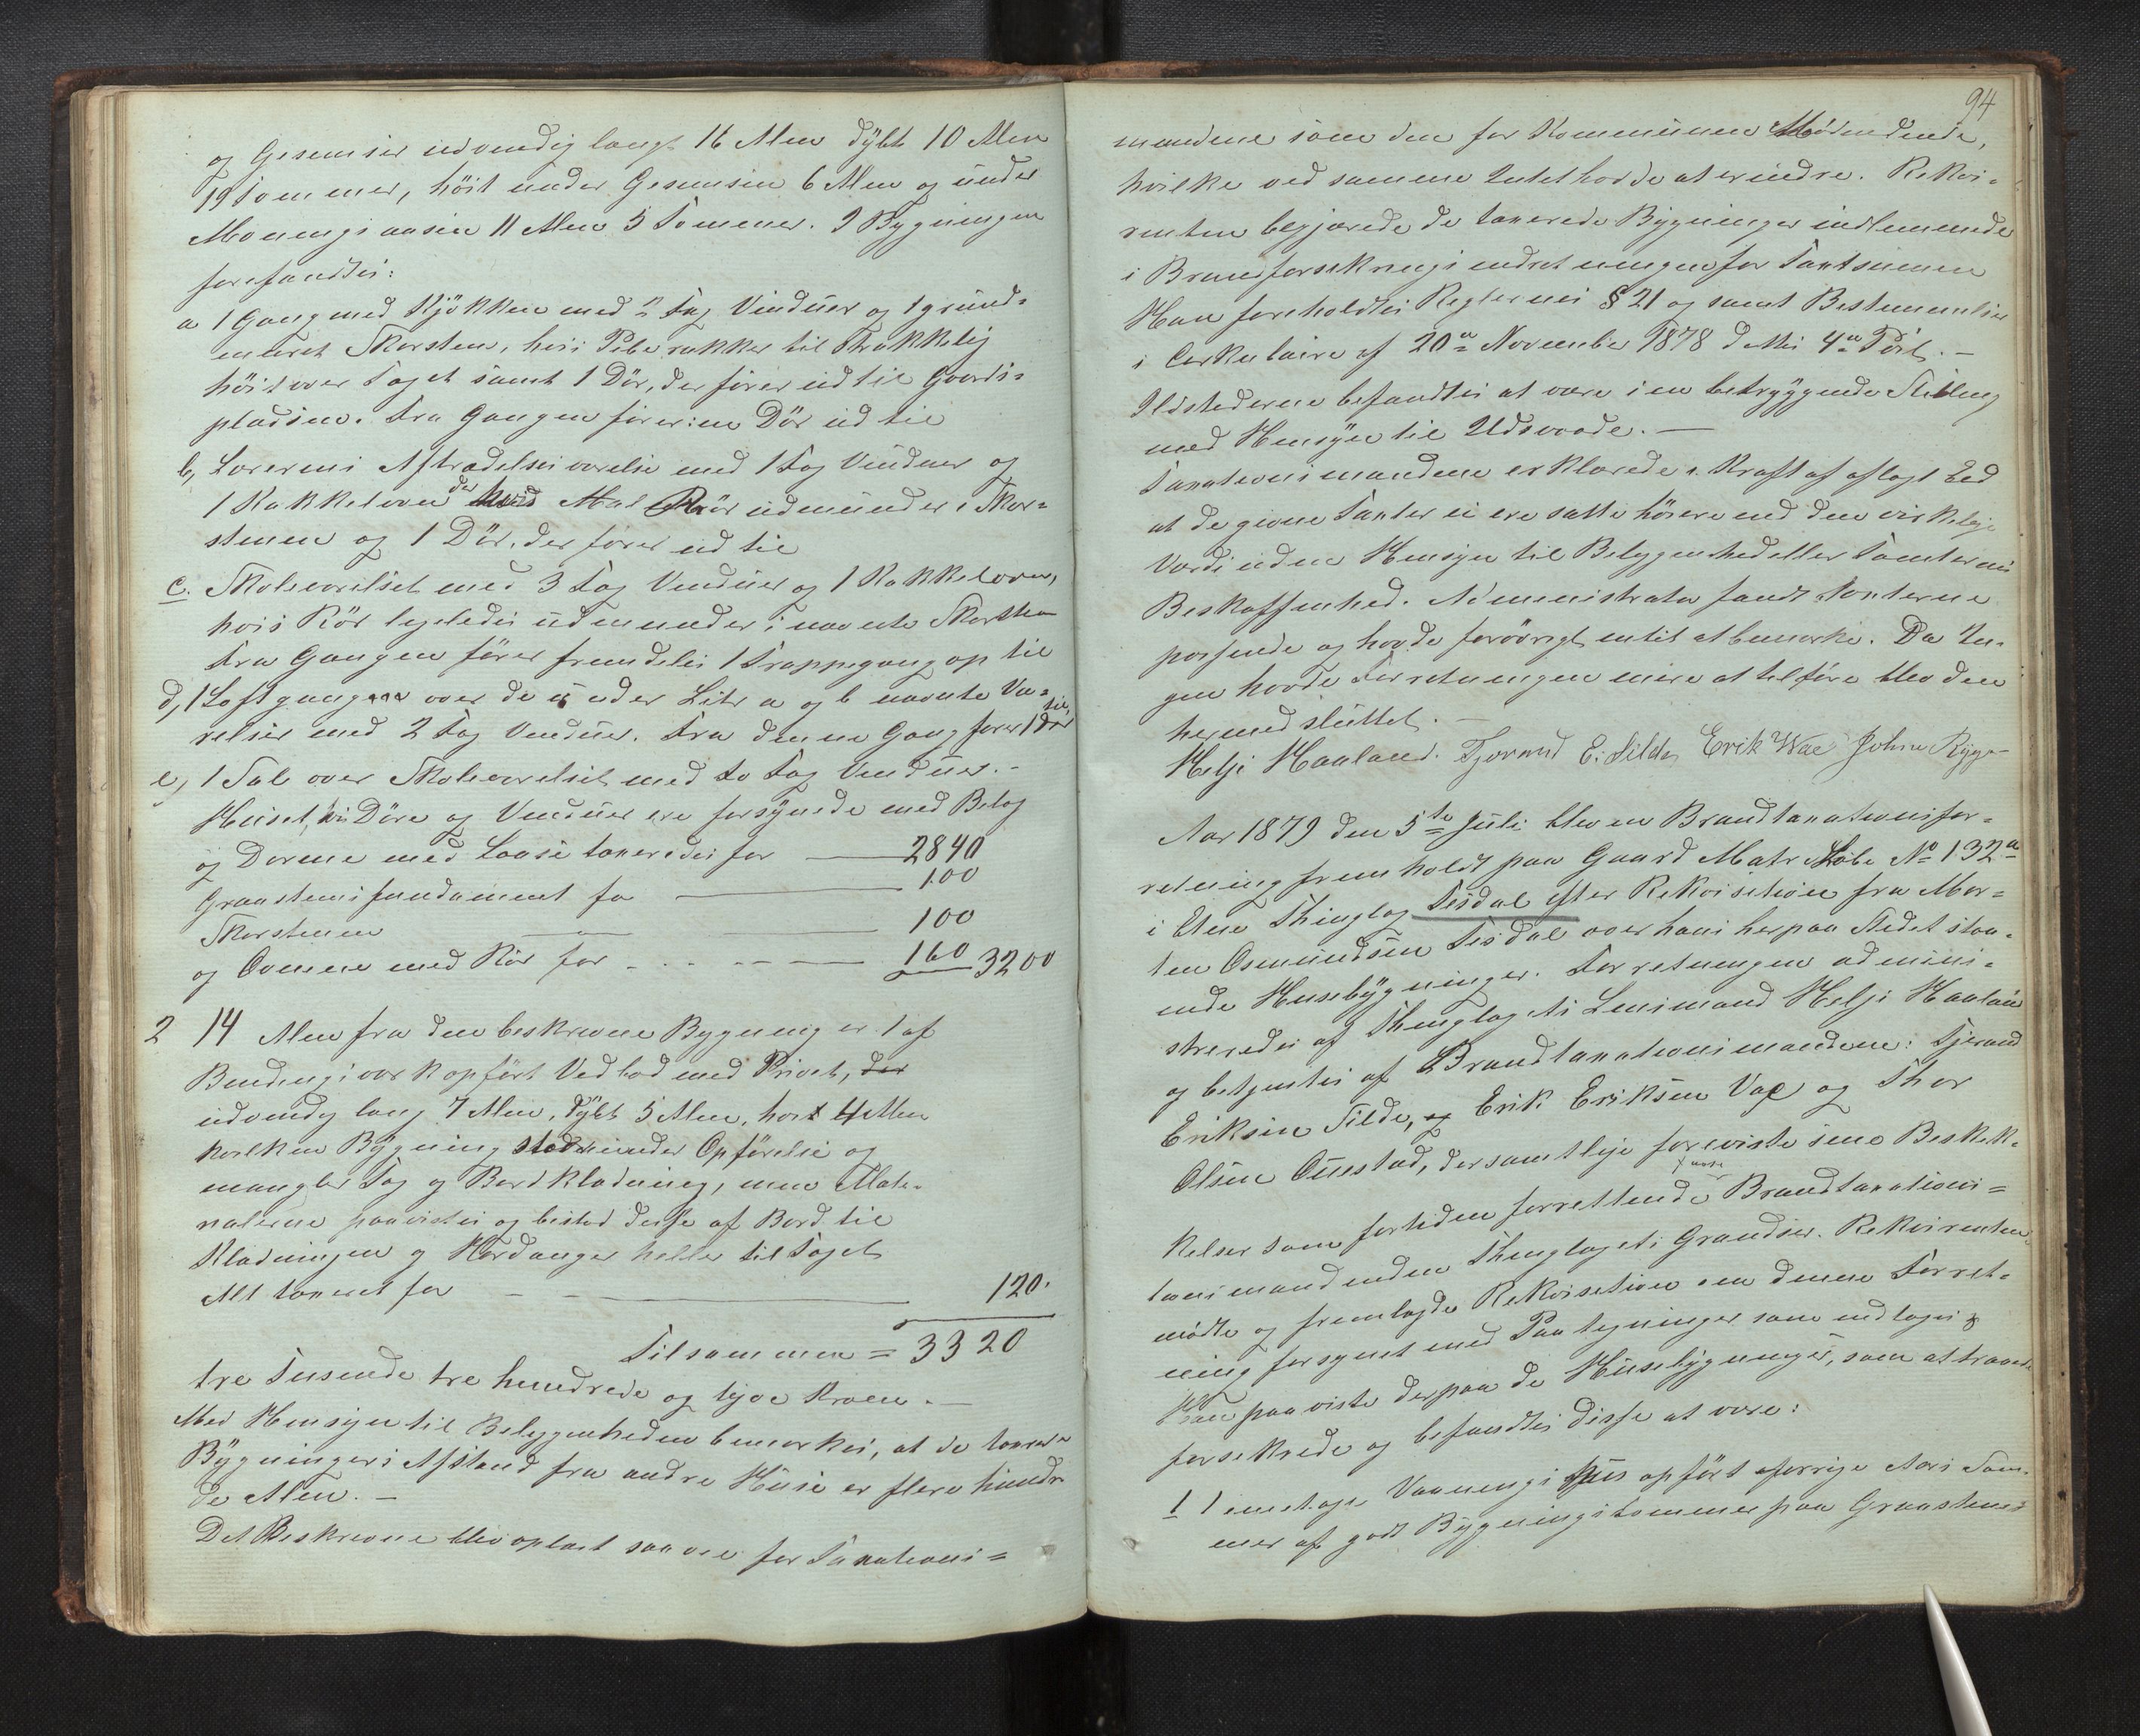 og Gesemser udvendig langt 16 Alen dybt 10 Alen
19 Tommer, höit under Gesemsen 6 Alen og under
Möningsaasen 11 Alen 5 Tommer. I Bygningen
forefandtes:
a 1 Gang med Kjökken med 2 Fag Vinduer og 1 grund-
muret Skorsten, hvis Pibe rækker tilstrækkelig
höit over Taget samt 1 Dör, der förer ud til Gaards-
pladsen. Fra Gangen förer en Dör ud til
b, Lærerens Aftrædelsesværelse med 1 Fag Vinduer og
1 Kakkelovn der med Rör udmunder i Skor-
stenen og 1 Dör, der förer ud til
c. Skoleværelset med 3 Fag Vinduer og 1 Kakkelovn,
hvis Rör ligeledes udmunder i nævnte Skorsten
Fra Gangen förer fremdeles 1 Trappegang op til
d, 1 Loftgang over de under Litr a og b nævnte Væ-
relser med 2 Fag Vinduer. Fra denne Gang förer 1 Dör til,
e, 1 Sal over Skoleværelset med to Fag Vinduer. -
Huset, hvis Döre og Vinduer ere forsynede med Beslag
og Dörene med Laase taxeredes for 2840
Graastensfundamentet for 100
Skorstenen 100
og Ovnene med Rör for 160 3200
2 14 Alen fra den beskrevne Bygning er 1 af
Bindingsværk opfört Vedbod med Privet, der
udvendig lang 7 Alen, dybt 5 Alen, höit 4 Alen
hvilken Bygning stod under Opförelse og
mangler Tag og Bordklædning, men Mate-
rialerne paavistes og bestod disse af Bord til
Klædningen og Hardanger heller til Taget
Alt taxeret for 120.
Tilsammen = 3320
tre Tusende tre hundrede og tyve Kroner. -
Med Hensyn til Beliggenheden bemærkes, at de taxerede
Bygningers Afstand fra andre Huse er flere hundre
de Alen. -
Det Beskrevne blev oplæst saavel for Taxations=
94
mændene som den for Kommunen Mödende,
hvilke ved samme Intet havde at erindre. Rekvi-
renten begjærede de taxerede Bygninger indlemmede
i Brandforsikringsindretningen for Taxtsummen
Han foreholdtes Reglernes § 21 og samt Bestemmelser
i Cirkulaire af 20de November 1878 dettes 4de Post. -
Ildstederne befandtes at være i en betryggende Stilling
med Hensyn til Ildsvaade. -
Taxationsmændene erklærede i Kraft af aflagt Eed
at de givne Taxter ei ere satte höiere end den virkelige
Værdi uden Hensyn til Beliggenhed eller Tomternes
Beskaffenhed. Administrator fandt Taxterne
passende og havde forövrigt intet at bemærke. Da In-
gen havde Forretningen mere at tilföre blev den
hermed sluttet. -
Helje Haaland. Tjerand E: Silde Erik Wae John Rygg
Aar 1879 den 5te Juli blev en Brandtaxationsfor-
retning fremholdt paa Gaard Matr Löbe No 132a
i Etne Thinglag Tesdal efter Rekvisition fra Mor-
ten Osmundsen Tesdal over hans herpaa Stedet staa-
ende Husebygninger. Forretningen admini-
streredes af Thinglagets Lensmand Helje Haaland
og betjentes af Brandtaxationsmændene: Tjerand
Eriksen Silde, og Erik Eriksen Vae og Thor
Olsen Ounestad, der samtlige foreviste sine Beskik-
kelser som fortiden forrettende faste Brandtaxations=
tionsmænd inden Thinglagets Grændser. Rekvirenten
mödte og fremlagde Rekvisition om denne Forret-
ning forsynet med Paategninger som indtages
Han paaviste derpaa de Husebygninger, som attraaedes
forsikrede og befandtes disse at være:
1 1 enetages Vaaningshus opfört forrige Aars Som-
mer af godt Bygningstömmer paa Graastens